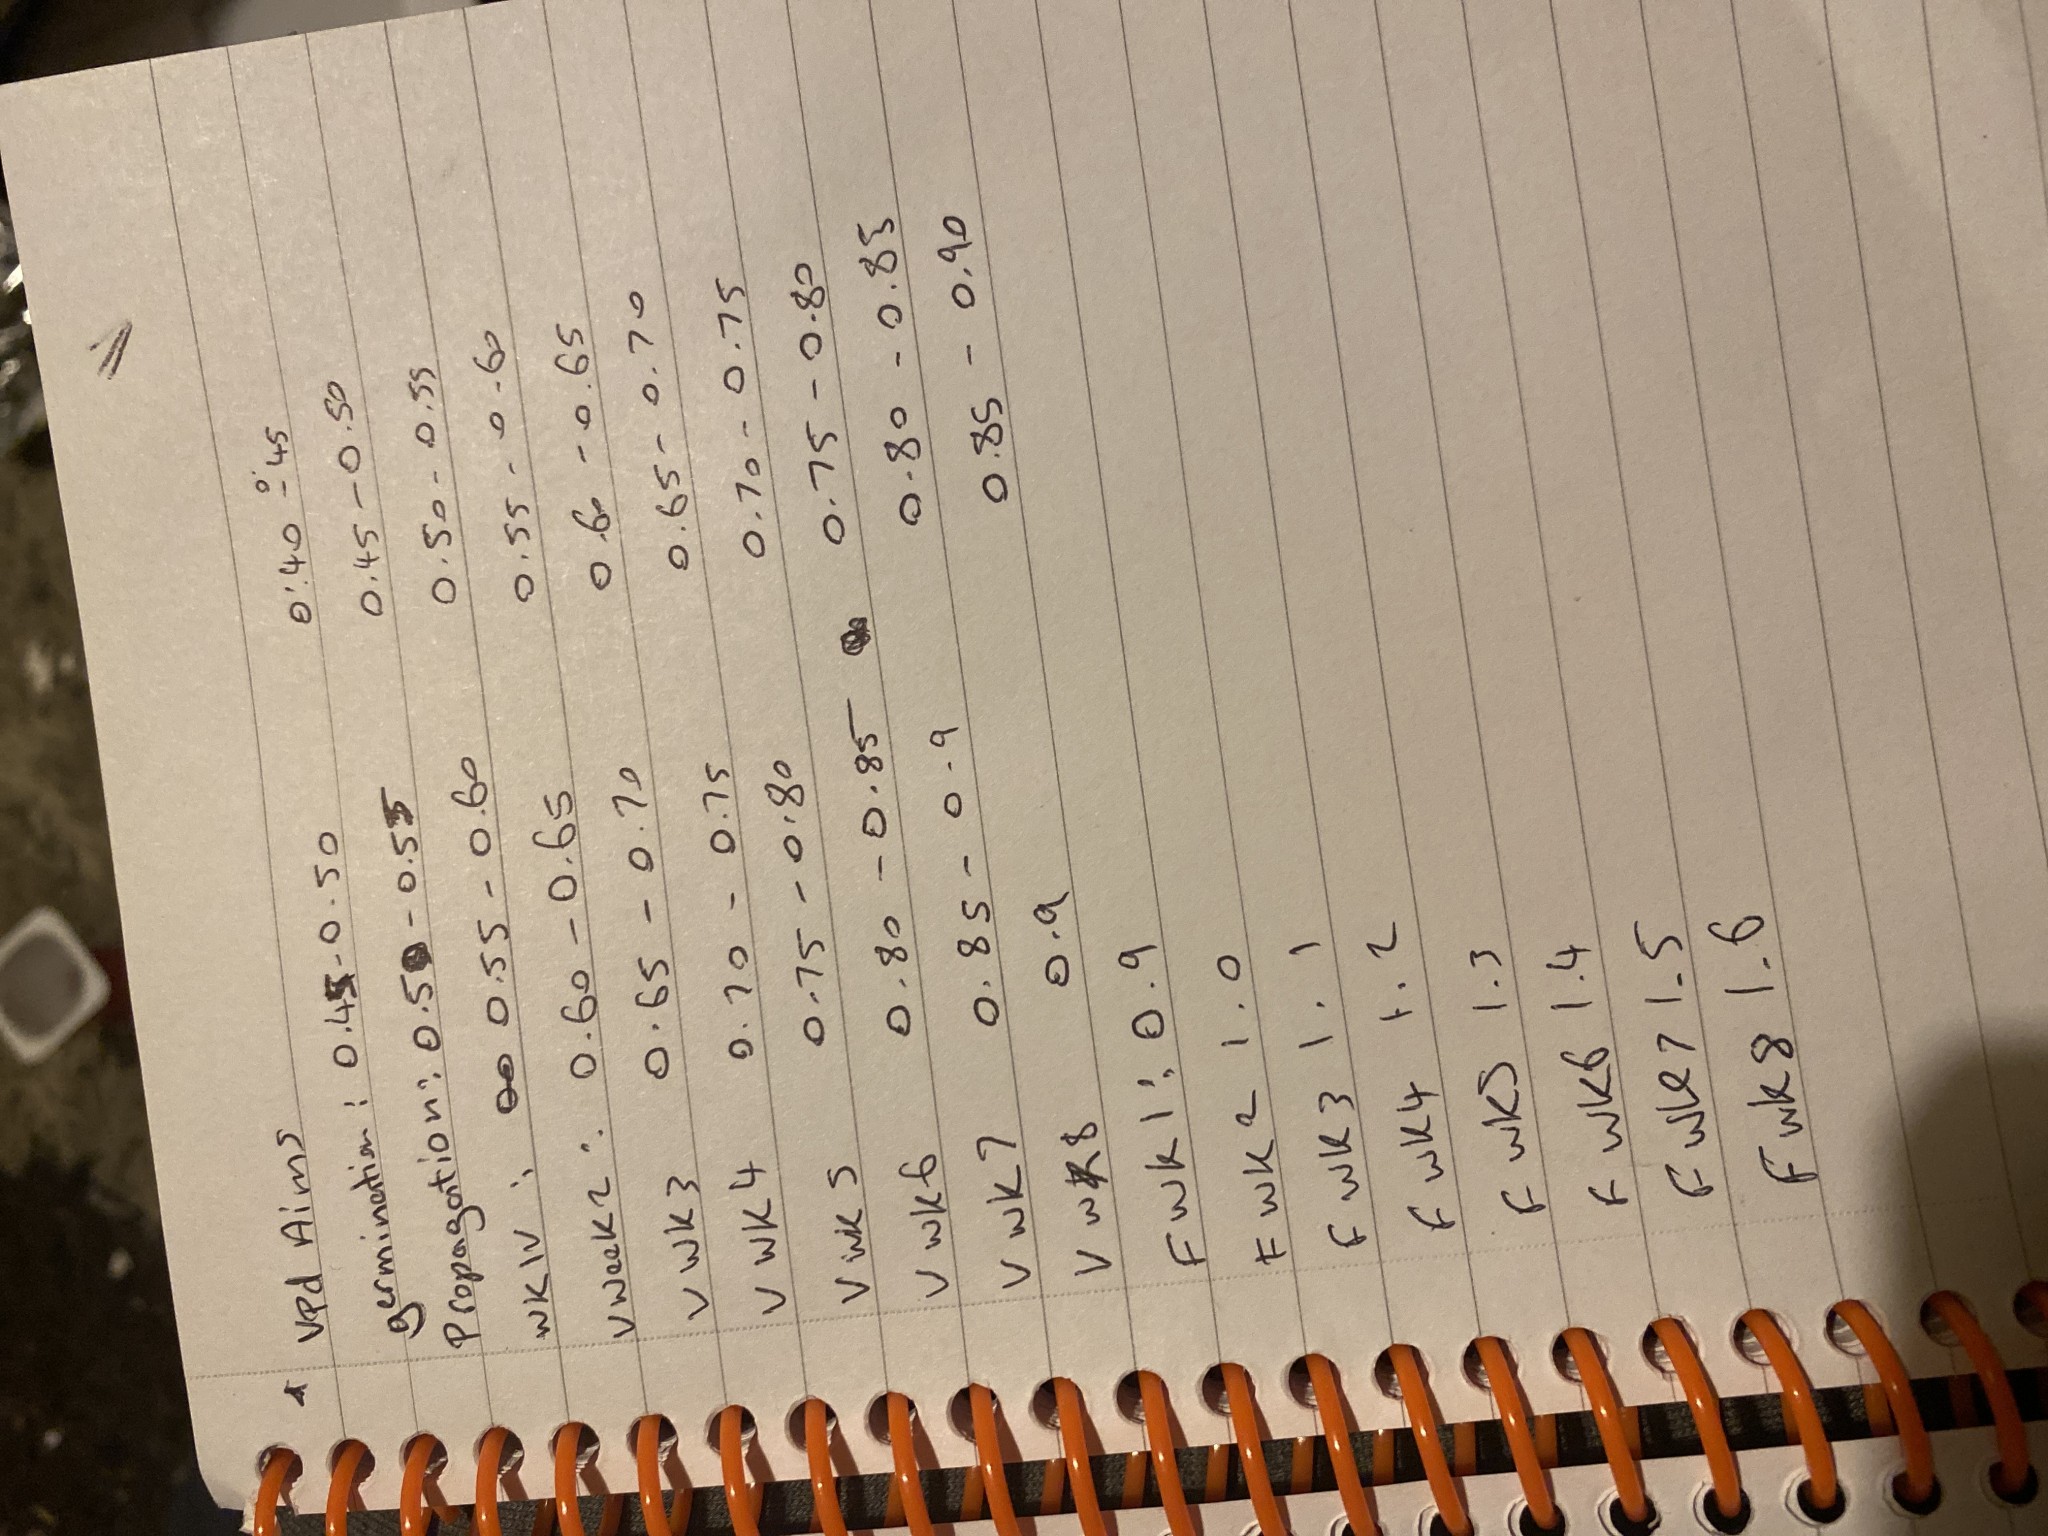 * VPD Aims
germination: 0.45-0.50 0.40-0.45
Propagation: 0.50-0.55 0.45-0.50
WK1V: 0.55-0.60 0.50-0.55
V week2: 0.60-0.65 0.55-0.60
V WK3 0.65-0.70 0.60-0.65
V WK4 0.70-0.75 0.65-0.70
V WK5 0.75-0.80 0.70-0.75
V WK6 0.80-0.85 0.75-0.80
V WK7 0.85-0.9 0.80-0.85
V WK8 0.9 0.85-0.90
F WK1: 0.9
F WK2 1.0
F WK3 1.1
F WK4 1.2
F WK5 1.3
F WK6 1.4
F WK7 1.5
F WK8 1.6